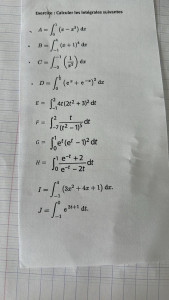 Exercice : Calculer les intégrales suivantes
A = ∫₀¹ (x − x²) dx
B = ∫₋₁ (x + 1)⁴ dx
C = ∫₋₂⁻¹ (1/x²) dx
D = ∫₀ (eˣ + e⁻ˣ)² dx
E = ∫₋₁ 4t(2t² + 3)² dt
F = ∫₋₇² t/(t² − 1)⁵ dt
G = ∫₀¹ eᵗ(eᵗ − 1)² dt
H = ∫₀¹ (e⁻ᵗ + 2)/(e⁻ᵗ − 2t) dt
I = ∫₋₁ (3x² + 4x + 1) dx.
J = ∫₋₁⁰ e²ᵗ⁺¹ dt.